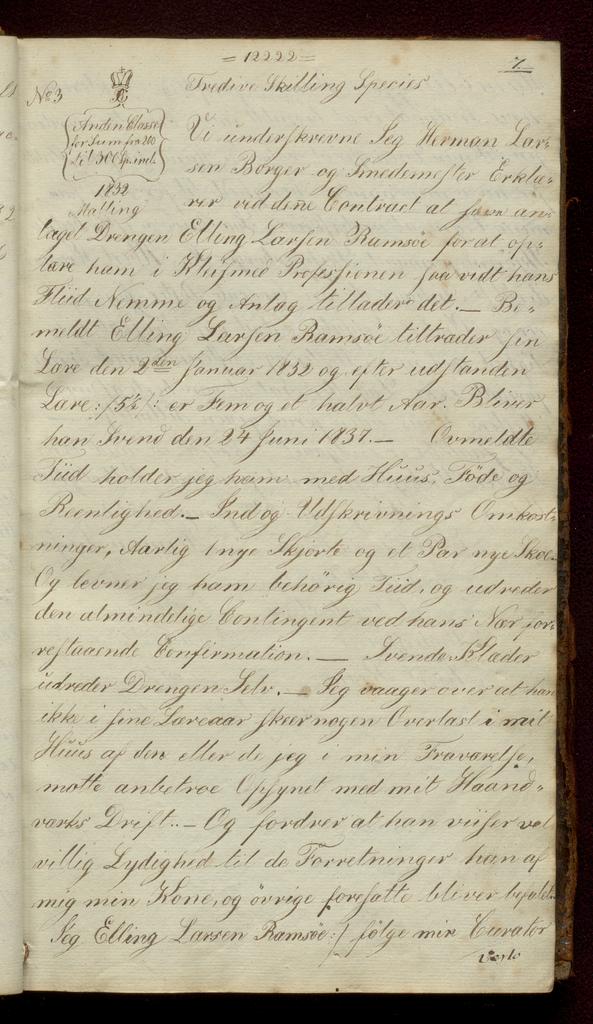 = 12222 =
7.
No 3
Tredive Skilling Species
Anden Classe
for Sum fra 200
til 300 Sp. incl.
1832
Malling
Vi underskrevne Jeg Herman Lar-
sen Borger og Smedemester Erklæ-
rer ved denne Contract at have an-
taget Drengen Elling Larsen Ramsøe for at op-
lære ham i Kleismed Professionen saa vidt hans
Fliid Nemme og Anlæg tillader det. — Be-
meldt Elling Larsen Ramsøe tiltræder sin
Lære den 2den Januar 1832 og efter udstanden
Lære :/5½/: er Fem og et halvt Aar. Bliver
han Svend den 24 Juni 1837. — Ovmeldte
Tiid holder jeg ham med Huus, Föde og
Reenlighed. — Ind og Udskrivnings Omkost-
ninger, Aarlig 1 nye Skjorte og et Par nye Skoe
Og levner jeg ham behörig Tiid, og udreder
den almindelige Contingent ved hans Nær for-
restaaende Confirmation. — Svende Klæder
udreder Drengen Selv. — Jeg vaager over at han
ikke i sine Læreaar skeer nogen Overlast i mit
Huus af den eller de jeg i min Fraværelse,
motte anbetroe Opsynet med mit Haand-
værks Drift. — Og fordrer at han viiser vel
villig Lydighed til de Forretninger han af
mig min Kone, og övrige foresatte bliver befalet.
Jeg Elling Larsen Ramsøe :/ fölge min Curator